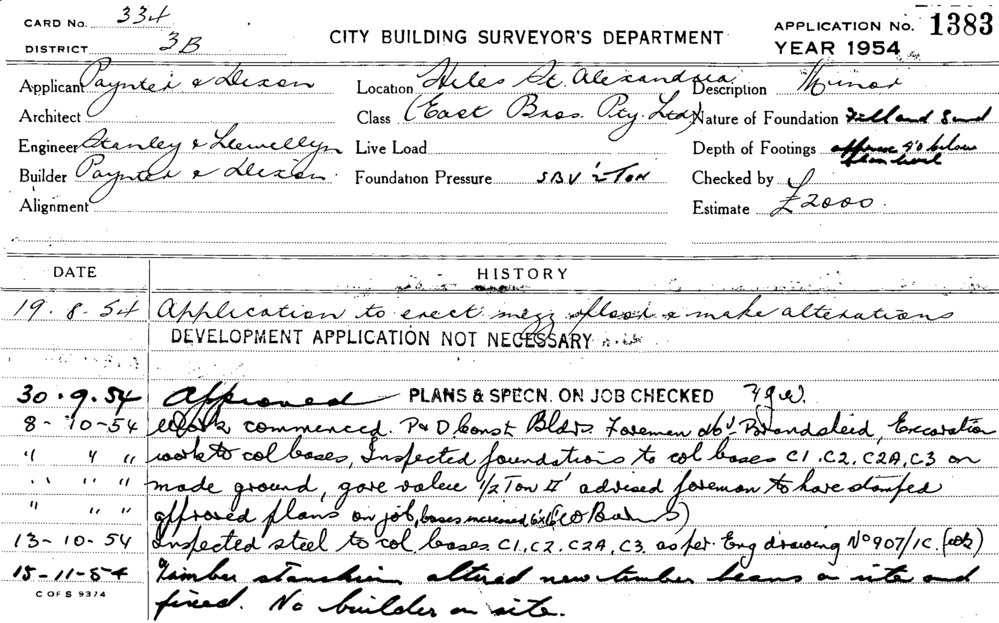 CARD No. 334
DISTRICT 3B
CITY BUILDING SURVEYOR'S DEPARTMENT
APPLICATION No. 1383
YEAR 1954
Applicant Paynter & Dixon
Location Hiles St. Alexandria
Description Minor
Architect
Class (East Bros. Pty. Ltd)
Nature of Foundation Fill and Sand
Engineer Stanley & Llewellyn
Live Load
Depth of Footings approx 4'0 below
Builder Paynter & Dixon.
Foundation Pressure SBV ½ Ton
Checked by
Alignment
Estimate £2000.
DATE HISTORY
19.8.54 Application to erect mezz floor & make alterations
DEVELOPMENT APPLICATION NOT NECESSARY
30.9.54 Approved PLANS & SPECN. ON JOB CHECKED
8-10-54 Work commenced. P & D. Const Bldrs. Foreman Excavation
" " " work to col bases, Inspected foundations to col bases C1, C2, C2A, C3 on
" " " made ground, gave value 1/2 Ton advised foreman to have stamped
" " " approved plans on job, bases increased
13-10-54 Inspected steel to col. bases. C1, C2, C2A, C3. as per Eng drawing No 907/1C.
15-11-54 Timber altered new timber beams on site and
C OF S 93/4
fixed. No builder on site.